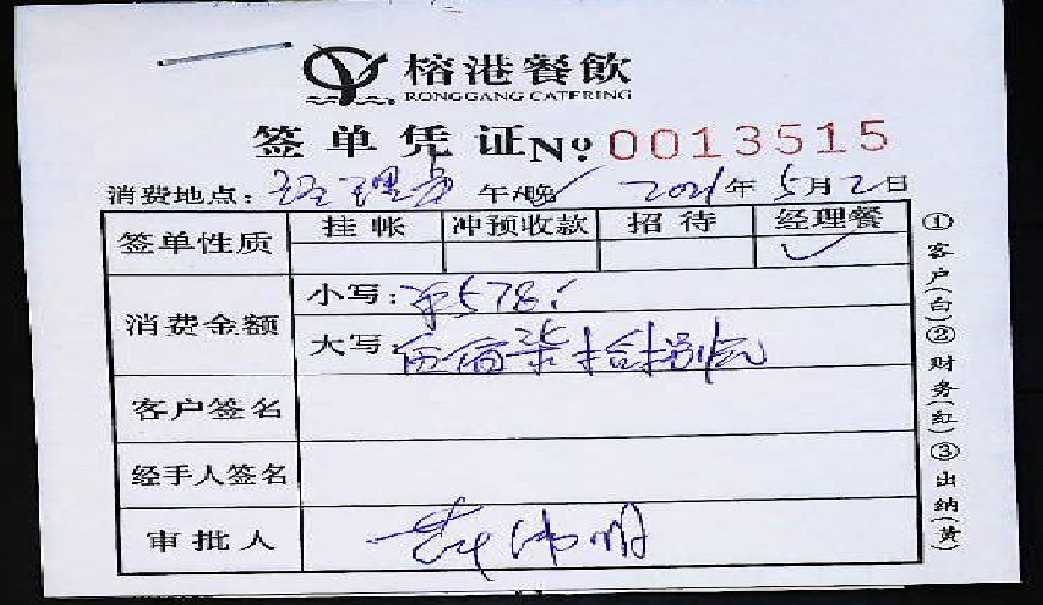 榕港餐飲
RONGGANG CATERING
签单凭证 № 0013515
消费地点：经理房 午/晚 2021年5月2日
签单性质 挂帐 冲预收款 招待 经理餐
✓
消费金额 小写：¥578.
大写：伍佰柒拾捌元
客户签名
经手人签名
审批人
①客户(白)②财务(红)③出纳(黄)